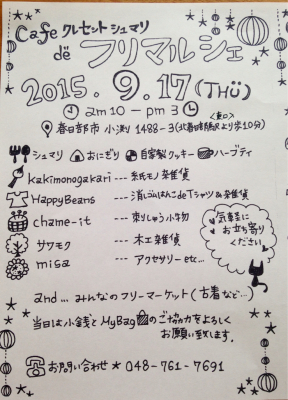 Cafe クレセントシュマリ
de フリマルシェ
2015. 9. 17 (THU)
am 10 - pm 3
<東口>
春日部市 小渕 1488-3 (北春日部駅より歩10分)
シュマリ おにぎり 自家製クッキー ハーブティ
kakimonogakari --- 紙モノ雑貨
HappyBeans --- 消しゴムはんこdeTシャツ&雑貨
chame-it --- 刺しゅう小物
サワモク --- 木工雑貨
misa --- アクセサリー etc...
お気軽に
お立ち寄り
ください
and ... みんなのフリーマーケット (古着など...)
当日は小銭とMyBagのご協力をよろしく
お願い致します。
お問い合わせ * 048-761-7691